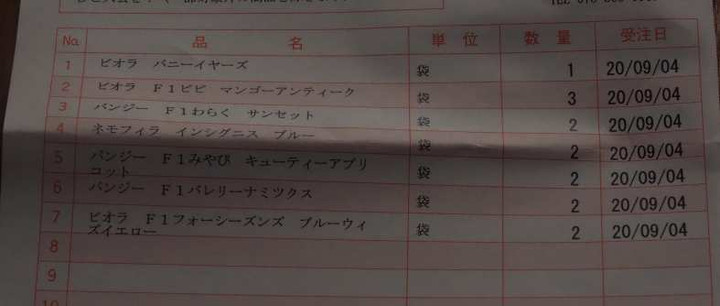 No. 品 名 単 位 数 量 受注日
1 ビオラ バニーイヤーズ 袋 1 20/09/04
2 ビオラ F1ビビ マンゴーアンティーク 袋 3 20/09/04
3 パンジー F1わらく サンセット 袋 2 20/09/04
4 ネモフィラ インシグニス ブルー 袋 2 20/09/04
5 パンジー F1みやび キューティーアプリ 袋 2 20/09/04
コット
6 パンジー F1バレリーナミックス 袋 2 20/09/04
7 ビオラ F1フォーシーズンズ ブルーウィ 袋 2 20/09/04
ズイエロー
8
9
10